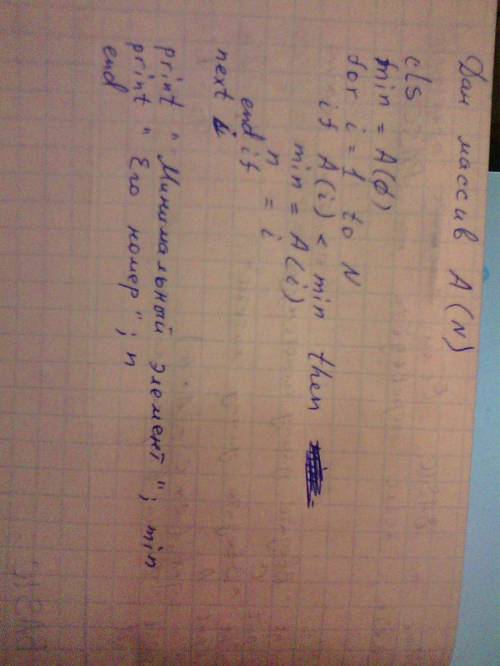 Дан массив A(N)
cls
min = A(0)
for i = 1 to N
if A(i) < min then
min = A(i)
n = i
end if
next i
print " Минимальный элемент"; min
print " Его номер"; n
end